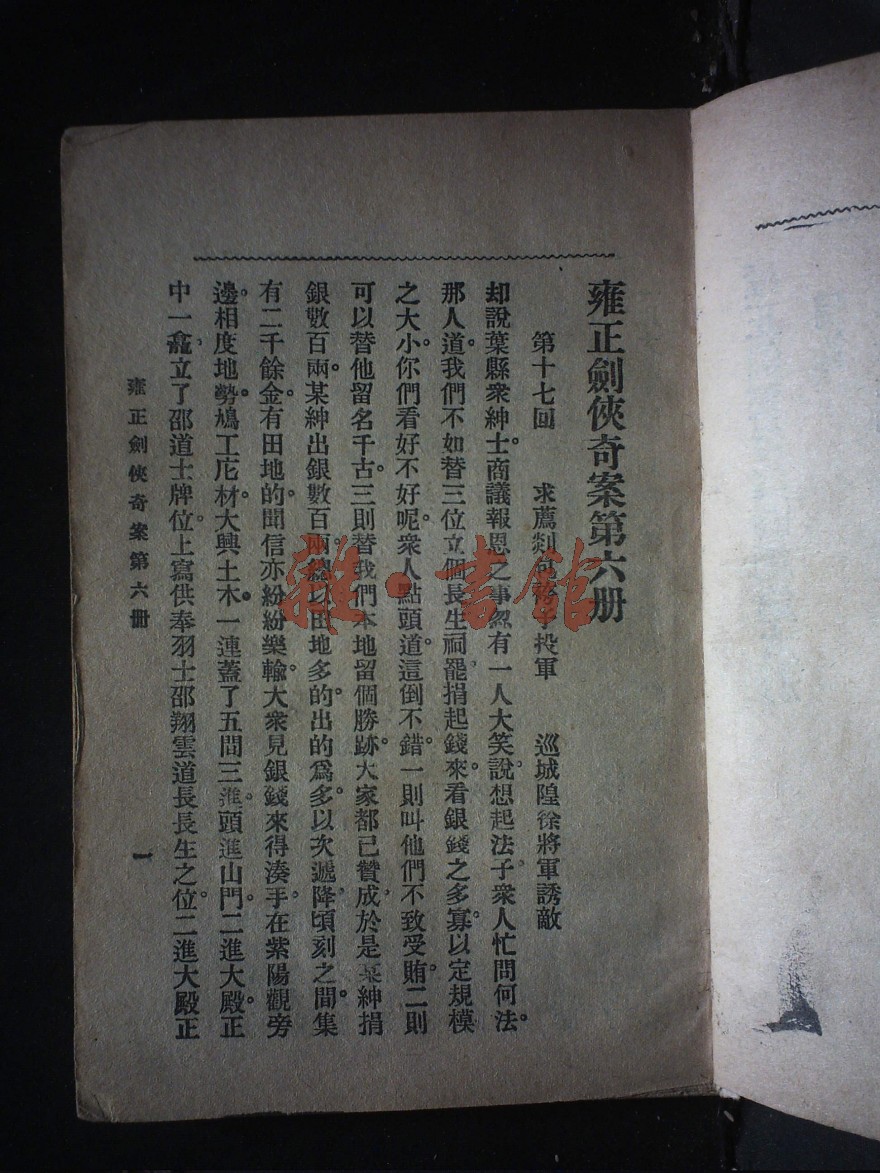 雍正劍俠奇案第六册
第十七回　求薦剡　投軍　巡城隍徐將軍誘敵
却說葉縣衆紳士。商議報恩之事。忽有一人大笑。說想起法子。衆人忙問何法。
那人道。我們不如替三位立個長生祠罷。捐起錢來。看銀錢之多寡。以定規模
之大小。你們看好不好呢。衆人點頭道。這倒不錯。一則叫他們不致受賄。二則
可以替他留名千古。三則替我們本地留個勝跡。大家都已贊成。於是某紳捐
銀數百兩。某紳出銀數百兩。總以田地多的。出的爲多。以次遞降。頃刻之間。集
有二千餘金。有田地的。聞信亦紛紛樂輸。大衆見銀錢來得湊手。在紫陽觀旁
邊。相度地勢。鳩工庀材。大興土木。一連蓋了五間三進。頭進山門。二進大殿。正
中一龕。立了邵道士牌位。上寫供奉羽士邵翔雲道長長生之位。二進大殿正
雍正劍俠奇案第六册
一
雜·書館